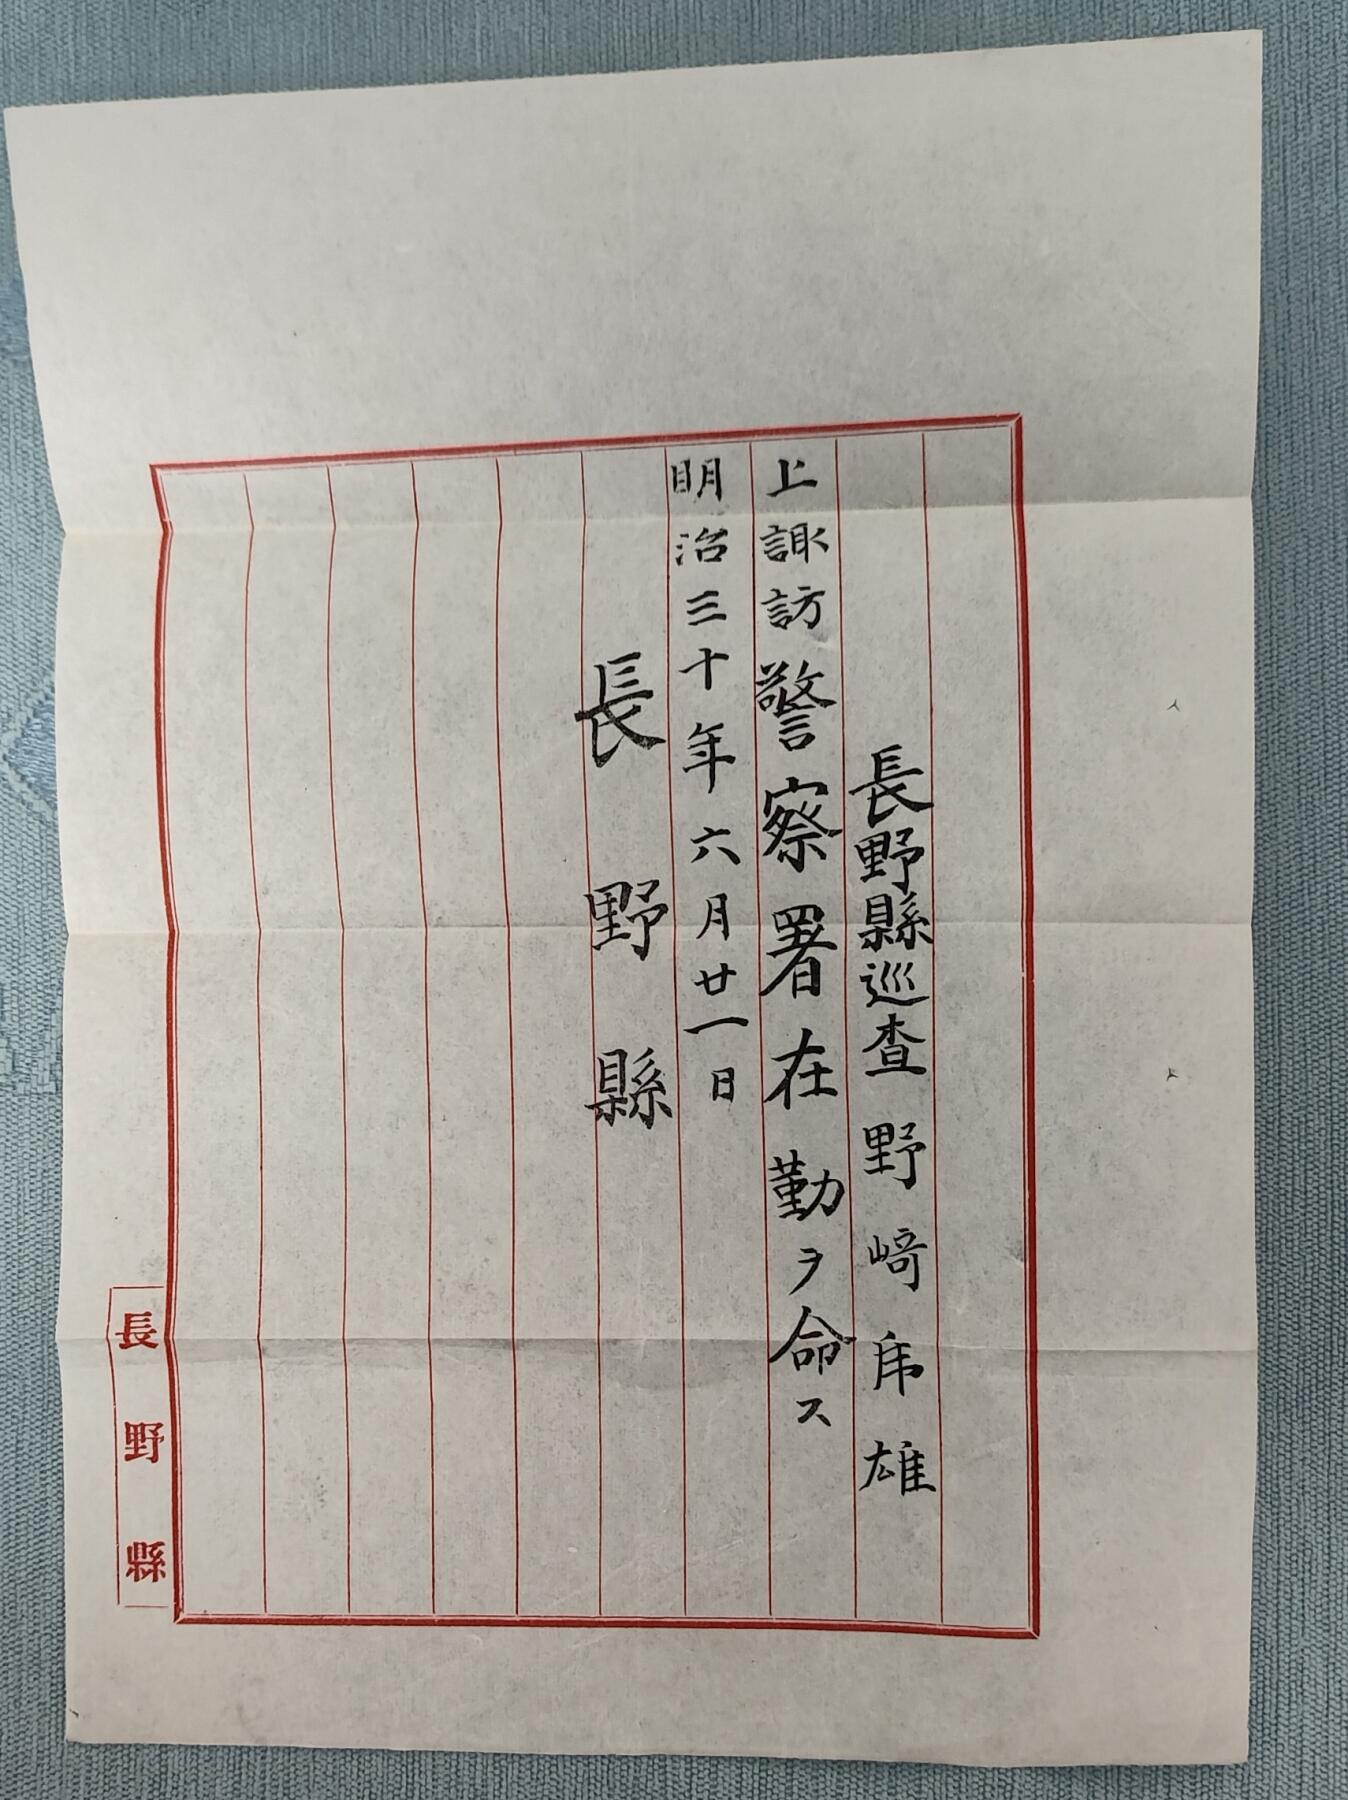 長野縣巡査野﨑乕雄
上諏訪警察署在勤ヲ命ス
明治三十年六月廿一日
長野縣
長野縣